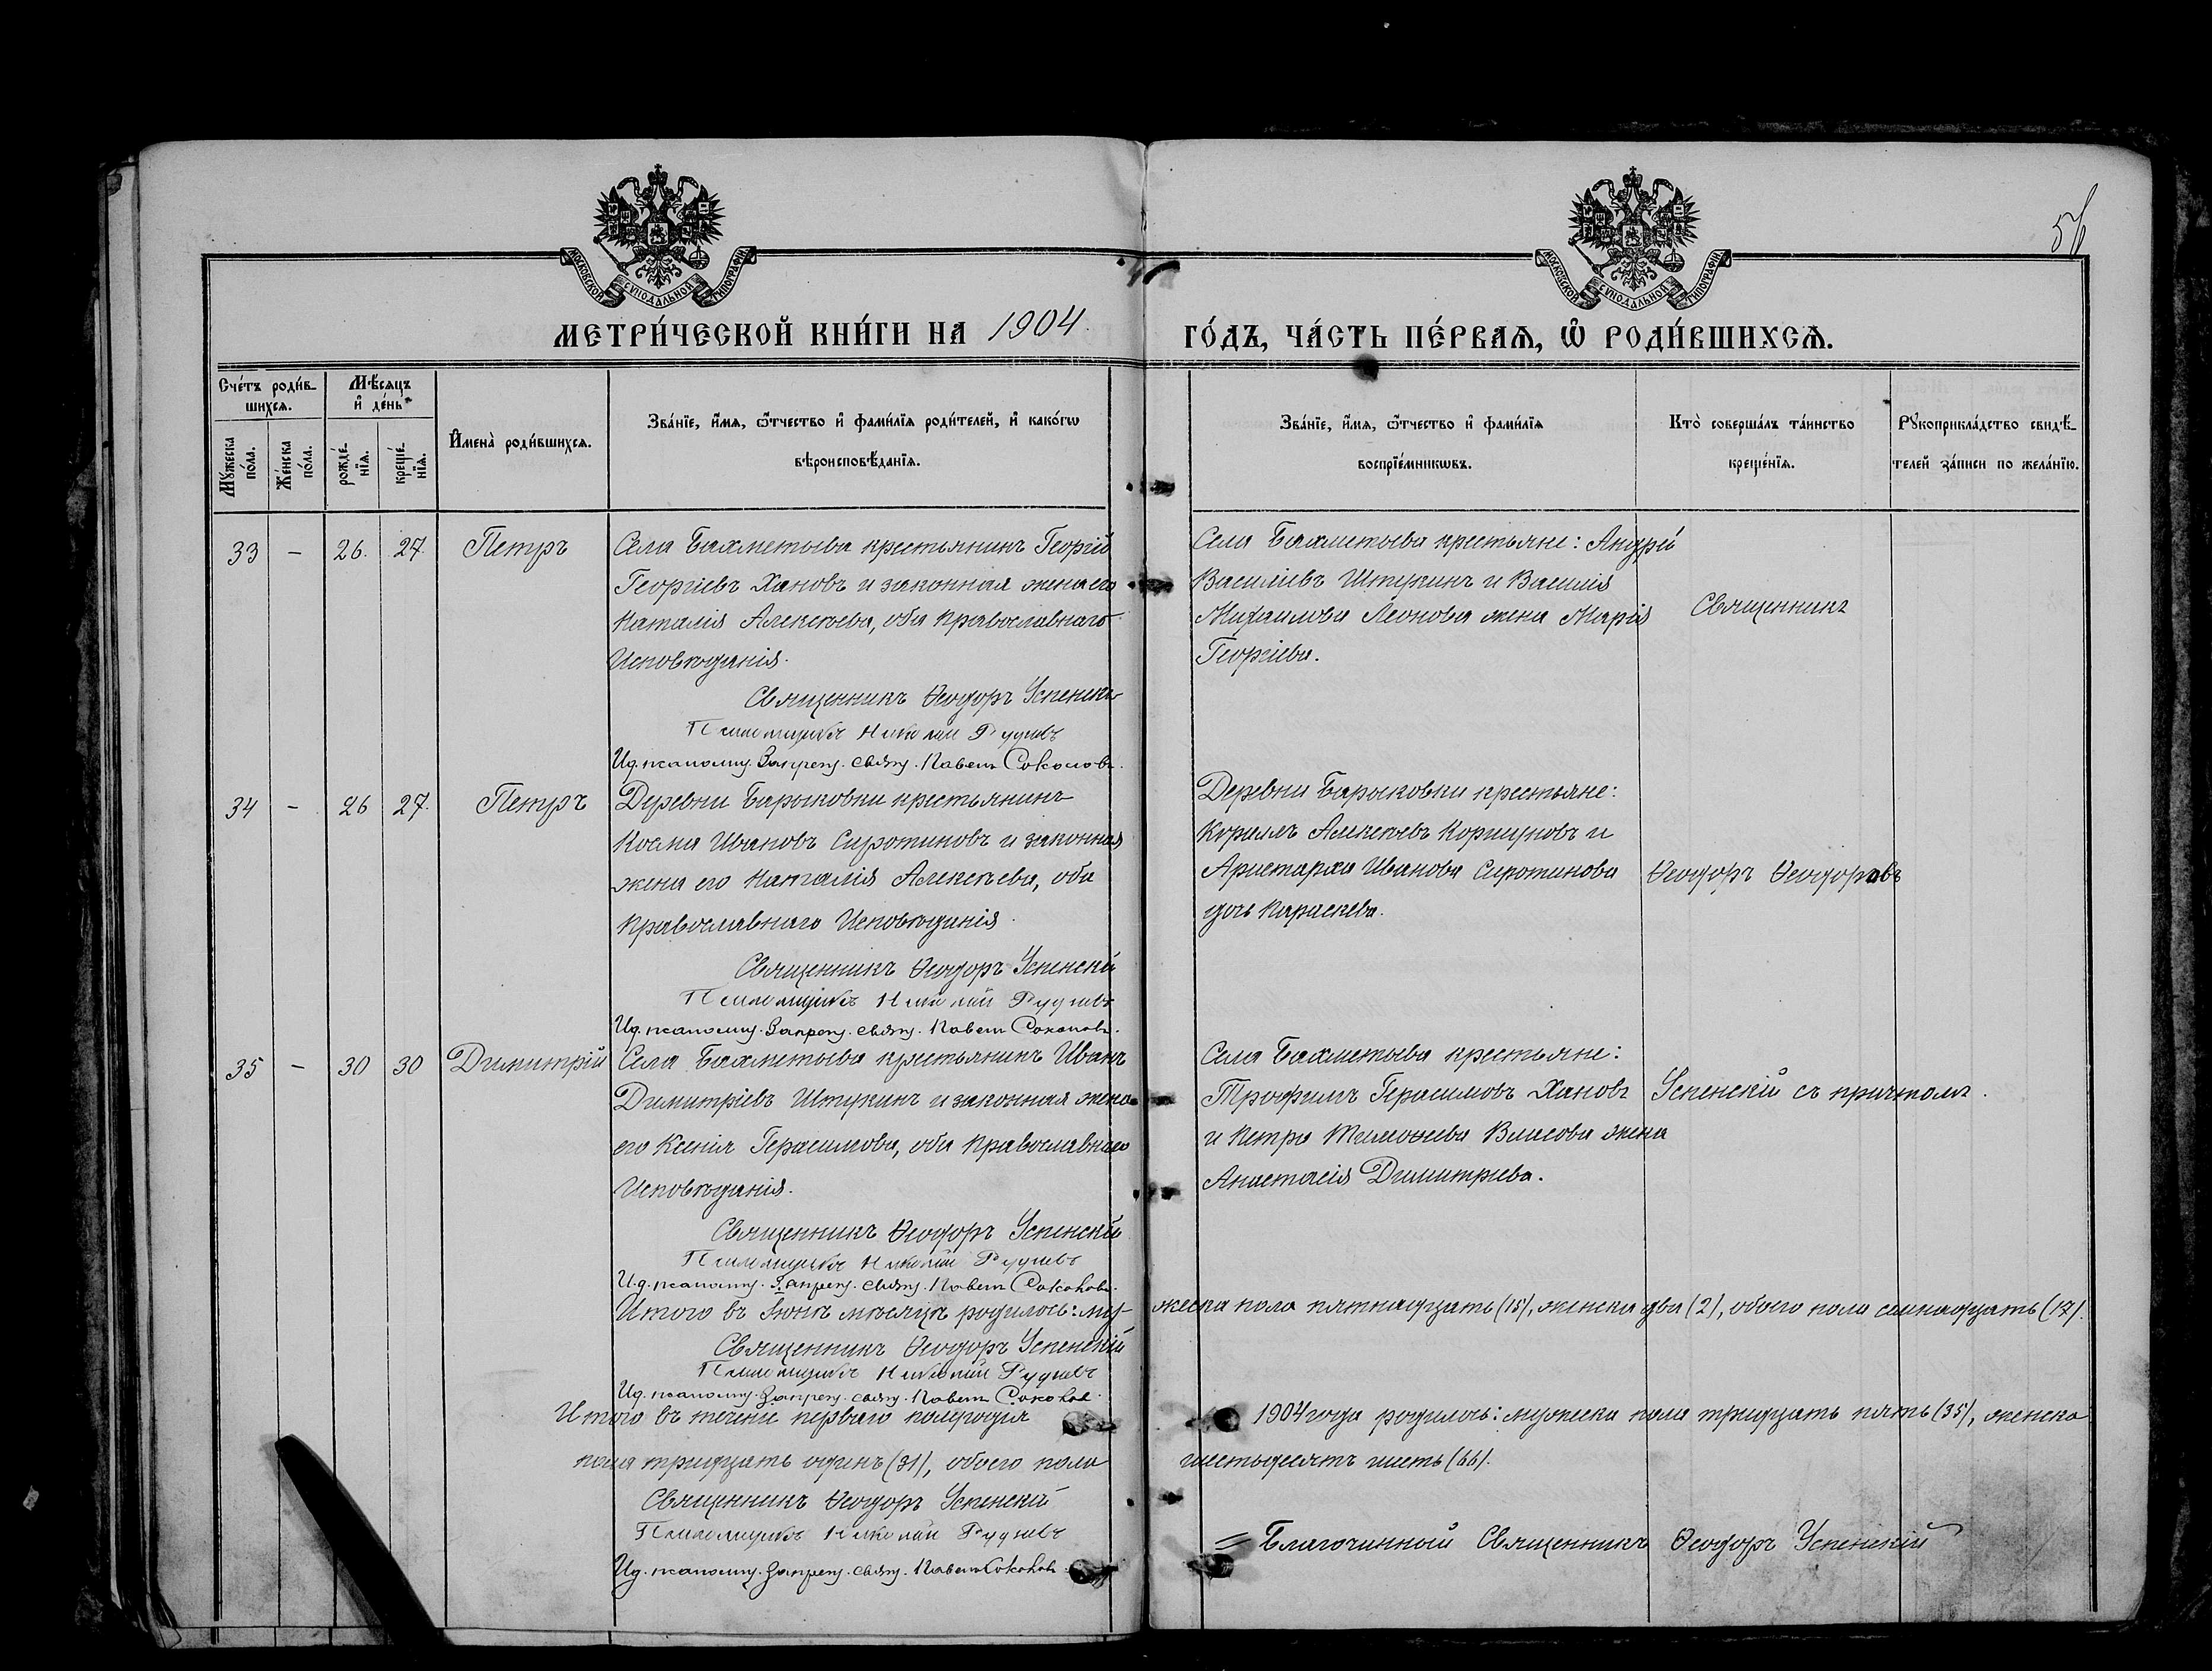 56
МОСКОВСКОЙ СѴНОДАЛЬНОЙ ТИПОГРАФІИ
МОСКОВСКОЙ СѴНОДАЛЬНОЙ ТИПОГРАФІИ
МЕТРИ́ЧЕСКОЙ КНИ́ГИ НА 1904 ГО́ДЪ, ЧА́СТЬ ПЕ́РВАѦ, Ѽ РОДИ́ВШИХСѦ.
Сче́тъ роди́в-
шихсѧ.
Мꙋ́жеска по́ла.
Же́нска по́ла.
Мѣ́сѧцъ
и҆ де́нь
рожде́-
нїѧ.
креще́-
нїѧ.
И҆мена̀ роди́вшихсѧ.
Зва́нїе, и҆́мѧ, ѻ҆́тчество и҆ фами́лїѧ роди́телей, и҆ како́гѡ
вѣроисповѣ́данїѧ.
Зва́нїе, и҆́мѧ, ѻ҆́тчество и҆ фами́лїѧ
воспрїе́мникѡвъ.
Кто̀ соверша́лъ та́инство
креще́нїѧ.
Рꙋкоприкла́дство свидѣ́-
телей за́писи по жела́нїю.
33 – 26. 27. Петръ
Села Бахметьева крестьянинъ Георгій
Георгіевъ Хановъ и законная жена его
Наталія Алексѣева, оба православнаго
Исповѣданія.
Священникъ Ѳеодоръ Успенскій
Псаломщикъ Николай Рудневъ
И.д. псаломщ. Запрещ. свящ. Павелъ Соколовъ.
Села Бахметьева крестьяне: Андрей
Василіевъ Штукинъ и Василія
Михаилова Леонова жена Марія
Георгіева.
Священникъ
34 – 26 27. Петръ
Деревни Барыковки крестьянинъ
Косма Ивановъ Сиротиновъ и законная
жена его Наталія Алексѣева, оба
православнаго Исповѣданія.
Священникъ Ѳеодоръ Успенскій
Псаломщикъ Николай Рудневъ
И.д. псаломщ. Запрещ. свящ. Павелъ Соколовъ.
Деревни Барыковки крестьяне:
Кириллъ Алексѣевъ Коршуновъ и
Аристарха Иванова Сиротинова
дочь Параскева.
Ѳеодоръ Ѳеодоровъ
35 – 30 30 Димитрій
Села Бахметьева крестьянинъ Иванъ
Димитріевъ Штукинъ и законная жена
его Ксенія Герасимова, оба православнаго
Исповѣданія.
Священникъ Ѳеодоръ Успенскій
Псаломщикъ Николай Рудневъ
И.д. псаломщ. Запрещ. свящ. Павелъ Соколовъ.
Села Бахметьева крестьяне:
Трофимъ Герасимовъ Хановъ
и Петра Тимоѳеева Власова жена
Анастасія Димитріева.
Успенскій съ причтомъ.
Итого въ Іюнѣ мѣсяцѣ родилось: му- жеска пола пятнадцать (15), женска два (2), обоего пола семнадцать (17).
Священникъ Ѳеодоръ Успенскій
Псаломщикъ Николай Рудневъ
И.д. псаломщ. Запрещ. свящ. Павелъ Соколовъ.
Итого въ теченіе перваго полугодія 1904 года родилось: мужеска пола тридцать пять (35), женска
пола тридцать одинъ (31), обоего пола шестьдесятъ шесть (66).
Священникъ Ѳеодоръ Успенскій
Псаломщикъ Николай Рудневъ
И.д. псаломщ. Запрещ. свящ. Павелъ Соколовъ.
= Благочинный Священникъ Ѳеодоръ Успенскій